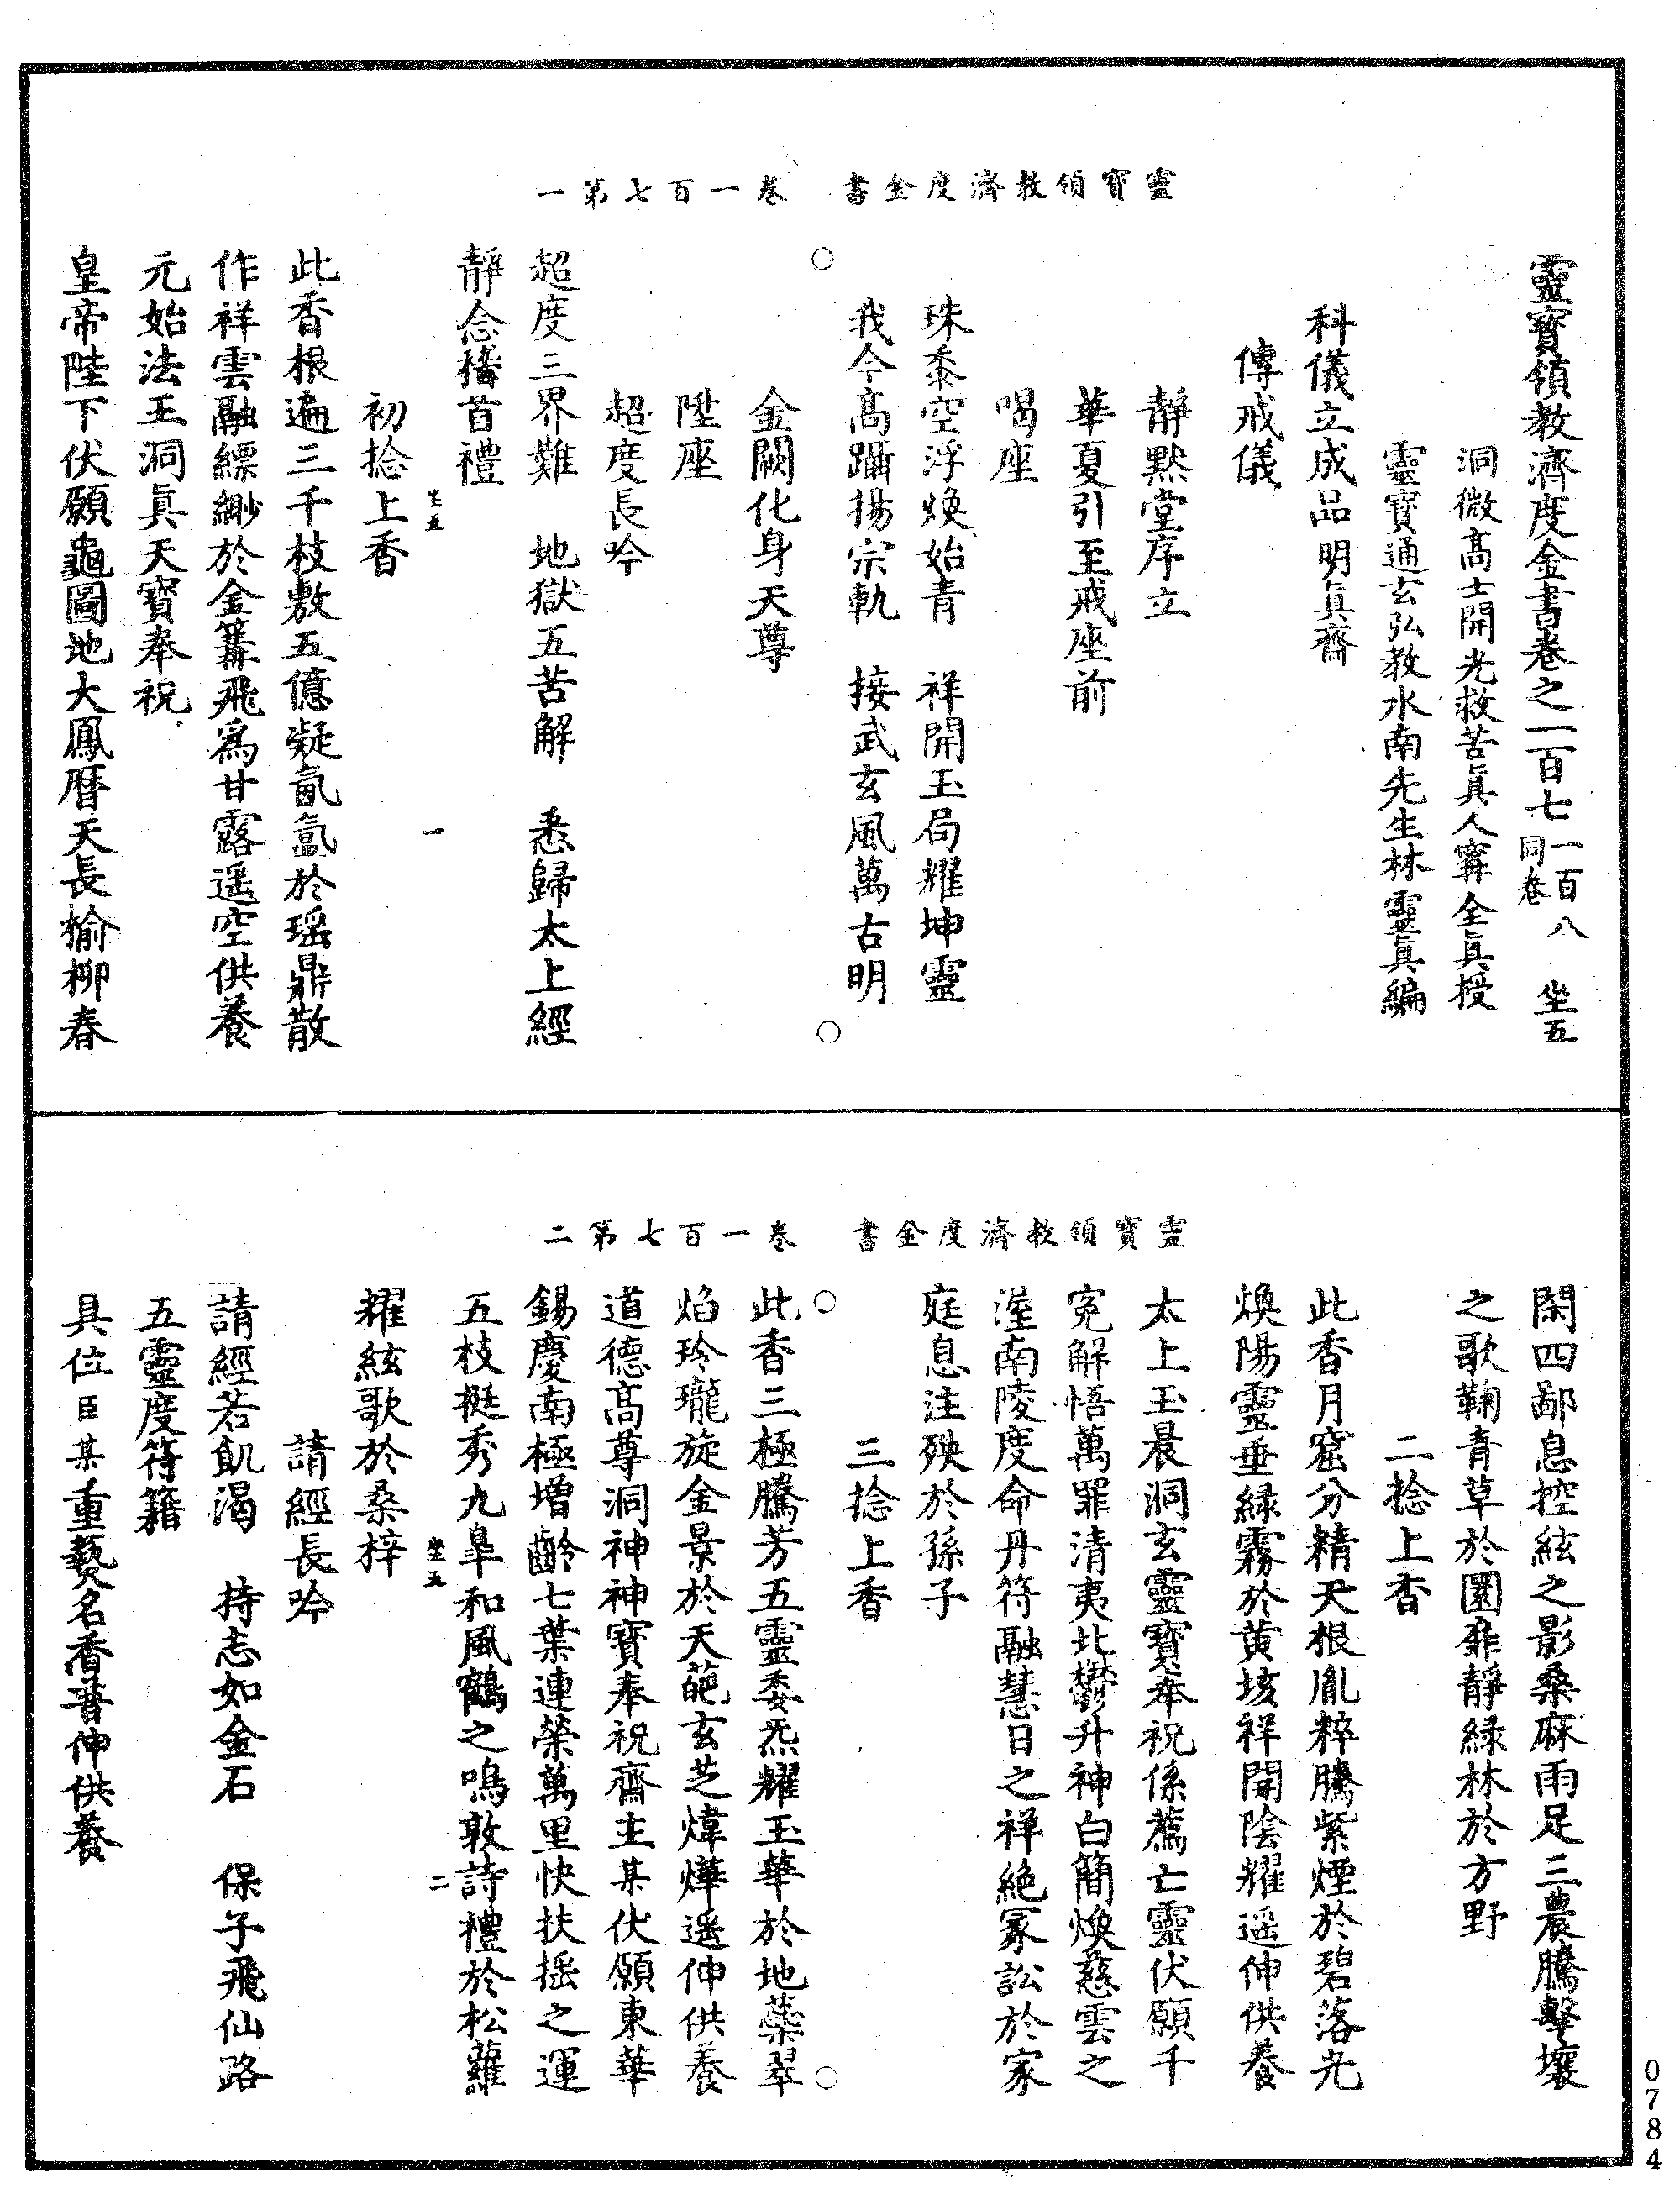 靈寶領教濟度金書　卷一百七第一
靈寶領教濟度金書卷之一百七一百八同卷　坐五
洞微高士開光救苦眞人寗全眞授
靈寶通玄弘教水南先生林靈眞編
科儀立成品明眞齋
傳戒儀
靜默堂序立
華夏引至戒座前
喝座
珠黍空浮煥始青　祥開玉局耀坤靈
我今高躡揚宗軌　接武玄風萬古明
金闕化身天尊
陞座
超度長吟
超度三界難　地獄五苦解　悉歸太上經
靜念稽首禮
坐五　一
初捻上香
此香根遍三千枝敷五億凝氤氳於瑶鼎散
作祥雲融縹緲於金篝飛爲甘露遥空供養
元始法王洞眞天寶奉祝
皇帝陛下伏願龜圖地大鳳曆天長榆柳春
靈寶領教濟度金書　卷一百七第二
閑四鄙息控絃之影桑麻雨足三農騰擊壤
之歌鞠青草於圜靜緑林於方野
二捻上香
此香月窟分精天根胤粹騰紫煙於碧落光
煥陽靈垂緑霧於黄垓祥開陰耀遥伸供養
太上玉晨洞玄靈寶奉祝係薦亡靈伏願千
寃解悟萬罪清夷北鬱升神白簡煥慈雲之
渥南陵度命丹符融慧日之祥絶冢訟於家
庭息注殃於孫子
三捻上香
此香三極騰芳五靈委炁耀玉華於地蘂翠
焰玲瓏旋金景於天葩玄芝煒燁遥伸供養
道德高尊洞神神寶奉祝齋主某伏願東華
錫慶南極增齡七葉連榮萬里快扶摇之運
五枝挺秀九臯和風鶴之鳴敦詩禮於松蘿
坐五　二
耀絃歌於桑梓
請經長吟
請經若飢渴　持志如金石　保子飛仙路
五靈度符籍
具位臣某重爇名香普伸供養
0784